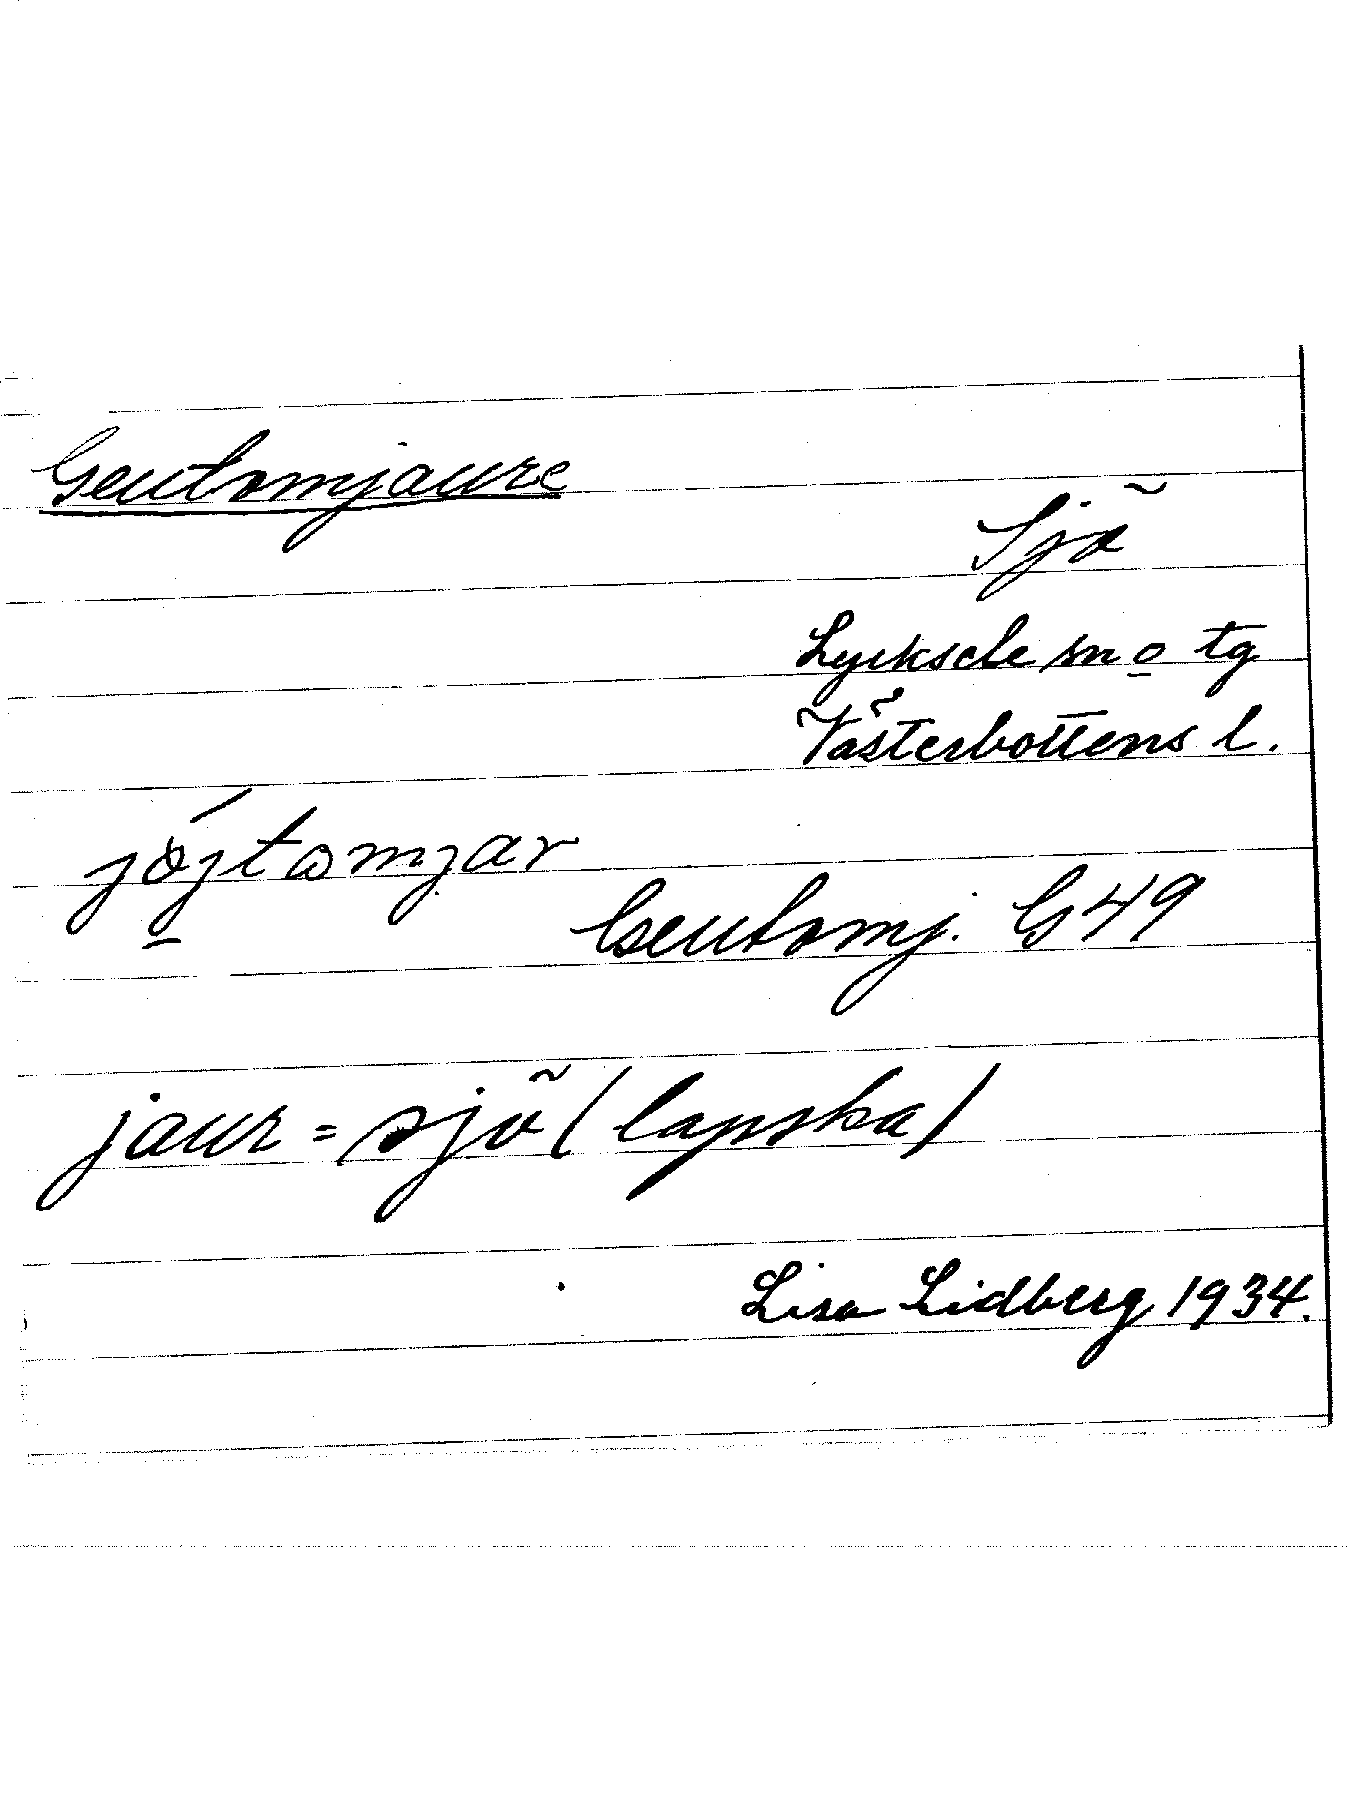 Geutomjaure
Sjö
Lycksele sn o tg
Västerbottens l.
jójtomjar
Geutomj. G49
jaur = sjö (lapska)
Lisa Lidberg 1934.